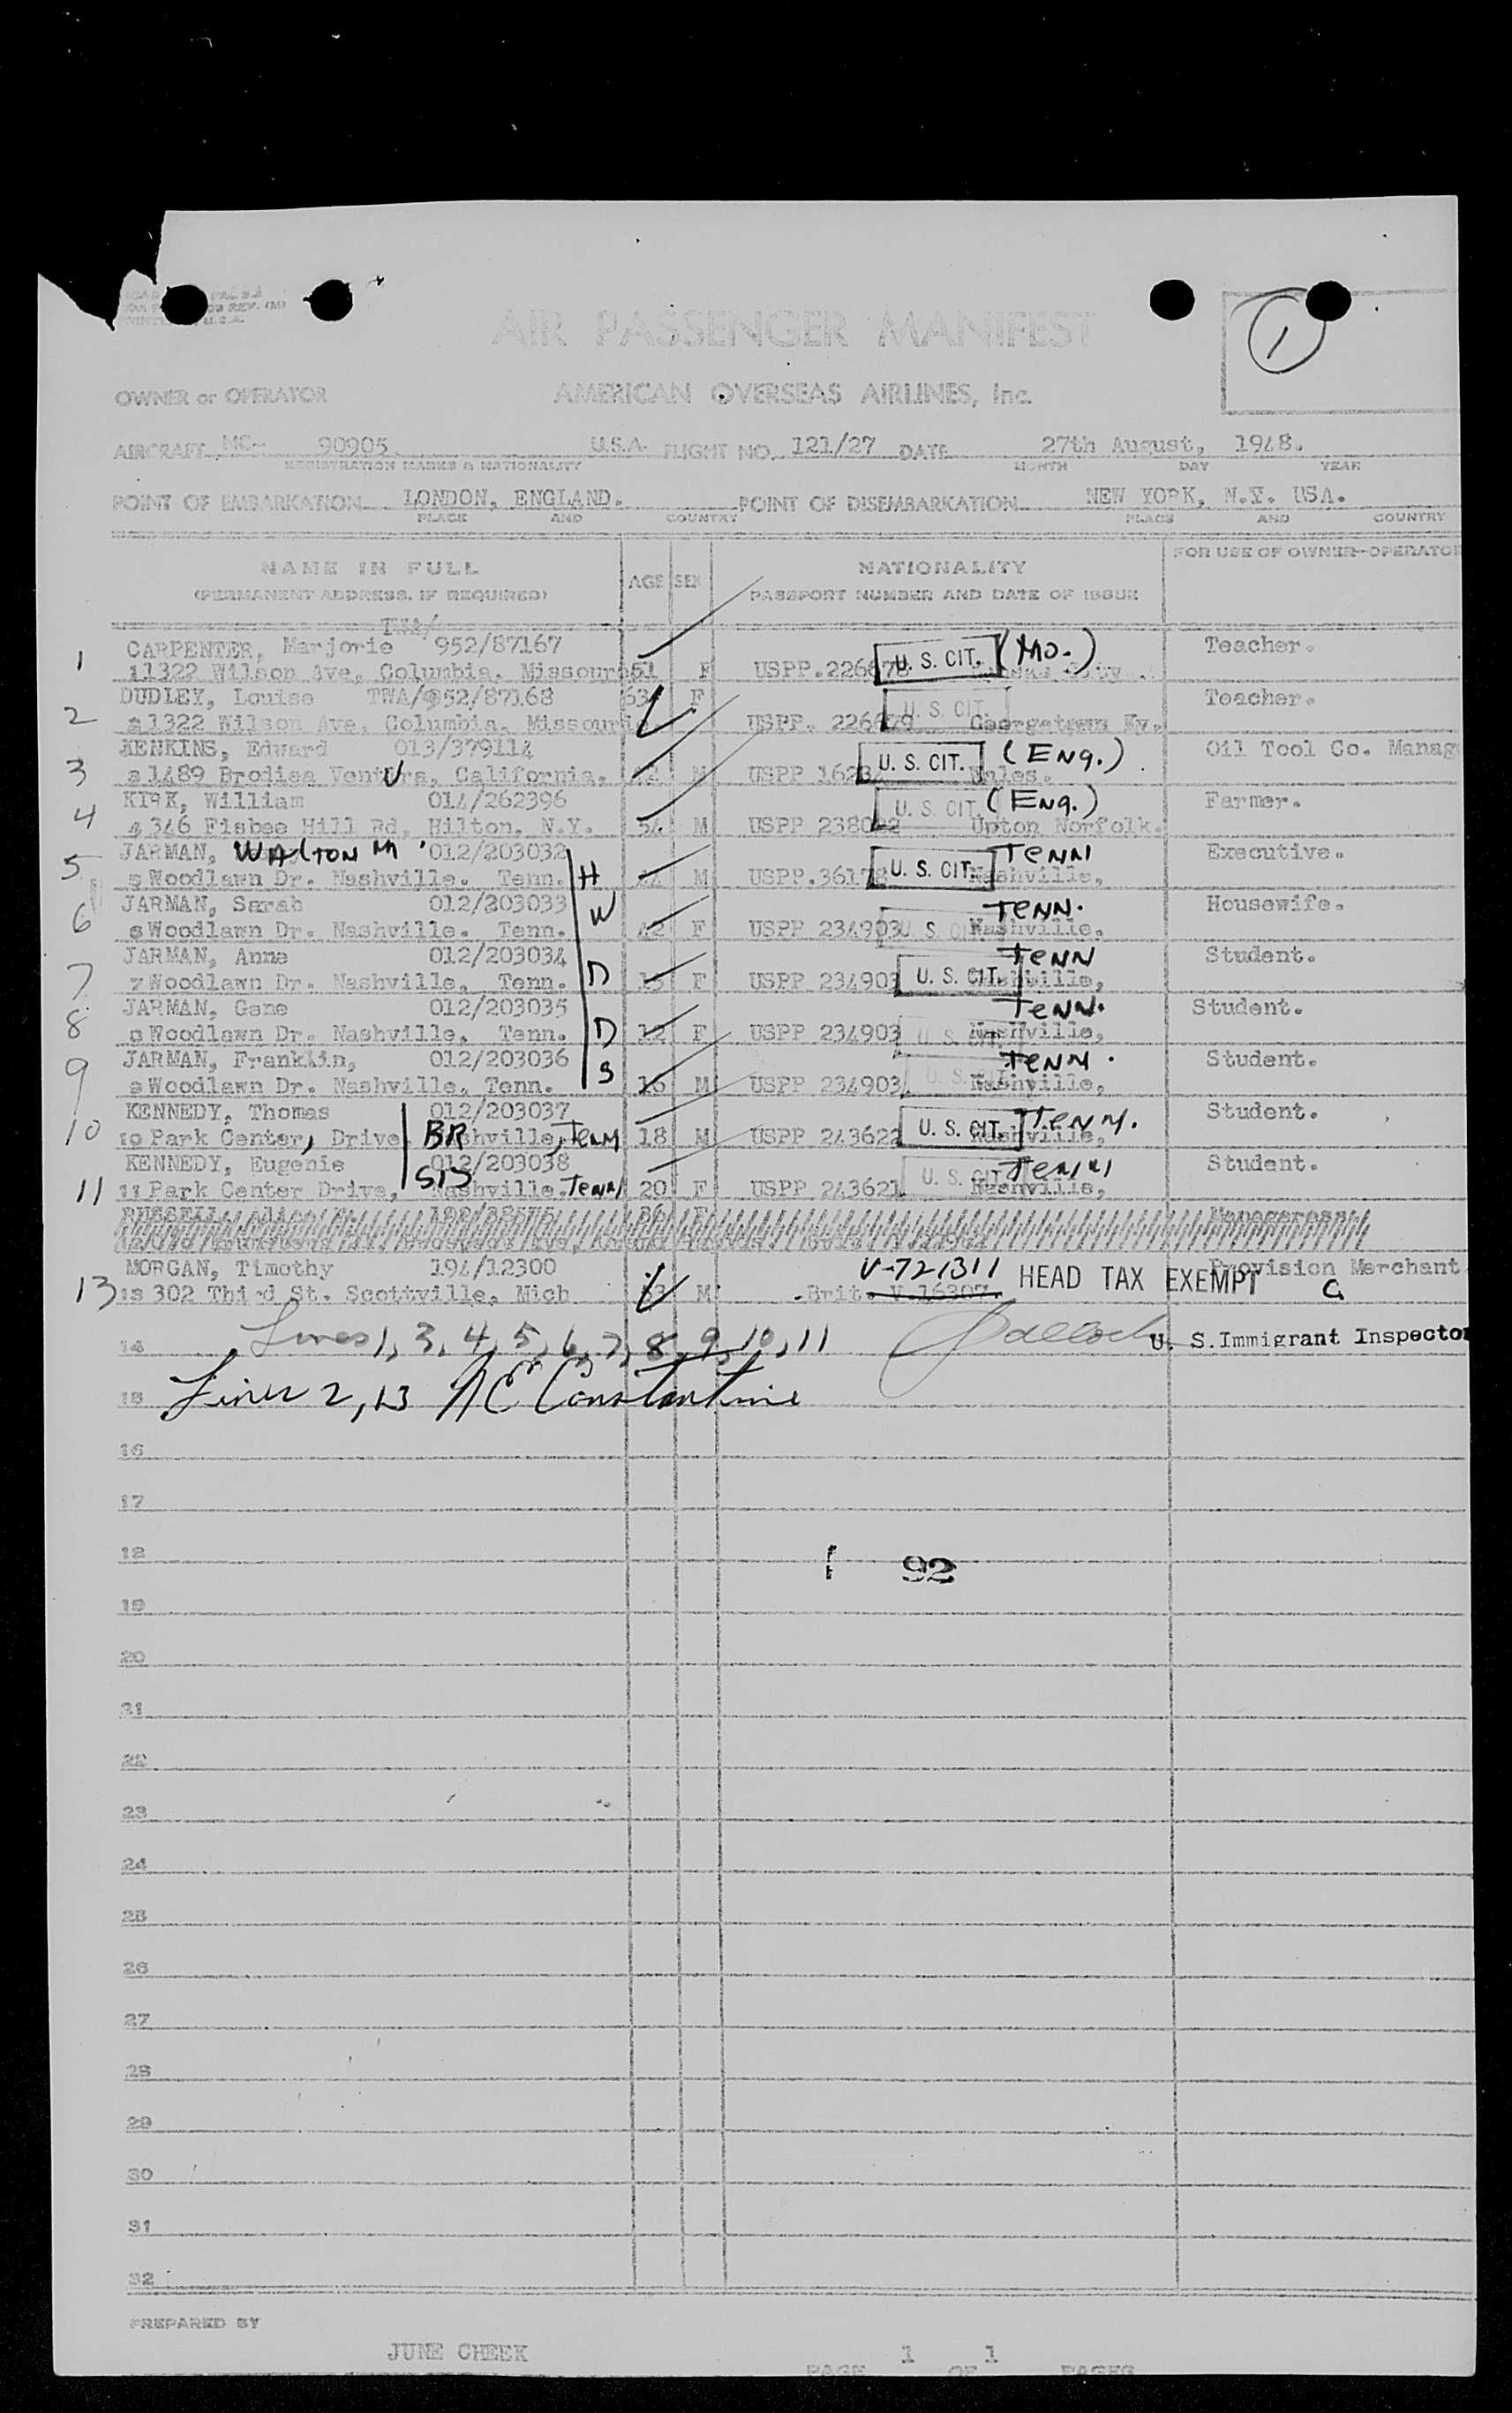 1
AIR PASSENGER MANIFEST
OWNER or OPERATOR AMERICAN OVERSEAS AIRLINES, Inc.
AIRCRAFT NC- 90905 U.S.A. FLIGHT NO. 121/27 DATE 27th August, 1948.
REGISTRATION MARKS & NATIONALITY MONTH DAY YEAR
POINT OF EMBARKATION LONDON, ENGLAND. POINT OF DISEMBARKATION NEW YORK, N.Y. USA.
PLACE AND COUNTRY PLACE AND COUNTRY
NAME IN FULL AGE SEX NATIONALITY FOR USE OF OWNER-OPERATOR
(PERMANENT ADDRESS, IF REQUIRED) PASSPORT NUMBER AND DATE OF ISSUE
TWA/
CARPENTER, Marjorie 952/87167 U. S. CIT. (MO.) Teacher.
1 1 1322 Wilson Ave, Columbia, Missouri 51 F USPP.226678
DUDLEY, Louise TWA/952/87168 63 F U. S. CIT. Teacher.
2 2 1322 Wilson Ave, Columbia, Missouri USPP. 226679 Georgetown Ky.
JENKINS, Edward 013/379114 U. S. CIT. (ENG.) Oil Tool Co. Manag
3 3 1489 Brodiea Ventura, California. M USPP Wales.
KIRK, William 014/262396 U. S. CIT. (ENG.) Farmer.
4 4 346 Fisbee Hill Rd, Hilton, N.Y. 54 M USPP Upton Norfolk.
JARMAN, WALTON M 012/203032 U. S. CIT. TENN Executive.
5 5 Woodlawn Dr. Nashville. Tenn. H M USPP.36178 Nashville,
JARMAN, Sarah 012/203033 TENN. Housewife.
6 6 Woodlawn Dr. Nashville. Tenn. W 42 F USPP 234903 U. S. CIT. Nashville.
JARMAN, Anne 012/203034 TENN Student.
7 7 Woodlawn Dr. Nashville, Tenn. D 15 F USPP 234903 U. S. CIT. Nashville,
JARMAN, Gene 012/203035 TENN. Student.
8 8 Woodlawn Dr. Nashville, Tenn. D 12 F USPP 234903 U. S. CIT. Nashville,
JARMAN, Franklin, 012/203036 TENN. Student.
9 9 Woodlawn Dr. Nashville, Tenn. S 16 M USPP 234903 U. S. CIT. Nashville,
KENNEDY, Thomas 012/203037 U. S. CIT. TENN. Student.
10 10 Park Center, Drive BR Nashville, TENN 18 M USPP 243622 Nashville,
KENNEDY, Eugenie 012/203038 U. S. CIT. TENN Student.
11 11 Park Center Drive, SIS Nashville. TENN 20 F USPP 243621 Nashville,
RUSSELL, F Manageress
MORGAN, Timothy 194/12300 V-721311 HEAD TAX EXEMPT Provision Merchant
13 13 302 Third St. Scottville, Mich M Brit. V.16307.
14 Lines 1, 3, 4, 5, 6, 7, 8, 9, 10, 11 U. S. Immigrant Inspector
15 Lines 2, 13 Constantine
16
17
18
92
19
20
21
22
23
24
25
26
27
28
29
30
31
32
PREPARED BY
JUNE CHEEK
PAGE 1 OF 1 PAGES